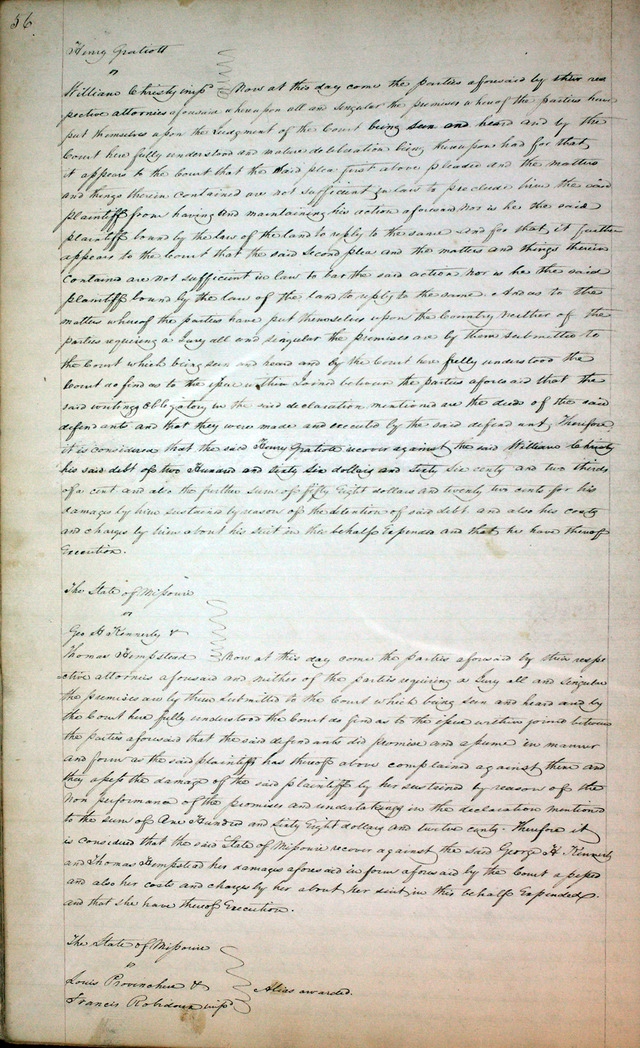 56.
Henry Gratiott
vs
William Christy impd Now at this day comes the parties aforesaid by their res
pective attornies aforesaid whereupon all and singular the premises whereof the parties have
put themselves upon the Judgment of the Court being seen and heard and by the
Court here fully understood and mature deliberation being thereupon had for that
it appears to the Court that the said plea first above pleaded and the matters
and things therein contained are not sufficient in law to preclude him the said
plaintiff from having and maintaining his action aforesaid nor is he the said
plaintiff bound by the law of the land to reply to the same and for that it further
appears to the Court that the said second plea and the matters and things therein
contained are not sufficient in law to bar the said action nor is he the said
plaintiff bound by the law of the land to reply to the same. And as to the
matters whereof the parties have put themselves upon the Country neither of the
parties requiring a Jury all and singular the premises are by them submitted to
the Court which being seen and heard and by the Court here fully understood the
Court do find as to the issue within Joined between the parties aforesaid that the
said writing Obligatory in the said declaration mentioned are the deeds of the said
defendants and that they were made and executed by the said defendant, Therefore
it is considered that the said Henry Gratiott recover against the said William Christy
his said debt of two Hundred and sixty six dollars and sixty six cents and two thirds
of a cent and also the further sum of fifty Eight dollars and twenty two cents for his
damages by him sustained by reason of the detention of said debt and also his costs
and charges by him about his suit in this behalf Expended and that he have thereof
Execution.
The State of Missouri
vs
Geo H Kennerly &
Thomas Hempstead Now at this day come the Parties aforesaid by their respe
ctive attornies aforesaid and neither of the parties requiring a Jury all and singular
the premises are by them submitted to the Court which being seen and heard and by
the Court here fully understood the Court do find as to the issue within joined between
the Parties aforesaid that the said defendants did promise and assume in manner
and form as the said plaintiff has thereof above complained against them and
they assess the damage of the said plaintiff by her sustained by reason of the
non performance of the promises and undertakings in the declaration mentioned
to the sum of One Hundred and sixty Eight dollars and twelve cents. Therefore it
is considered that the said State of Missouri recover against the said George H. Kennerly
and Thomas Hempstead her damages aforesaid in form aforesaid by the Court assessed
and also her costs and charges by her about her suit in this behalf Expended
and that she have thereof Execution.
The State of Missouri
vs
Louis Provinchere & Alias awarded.
Francis Robidoux impd